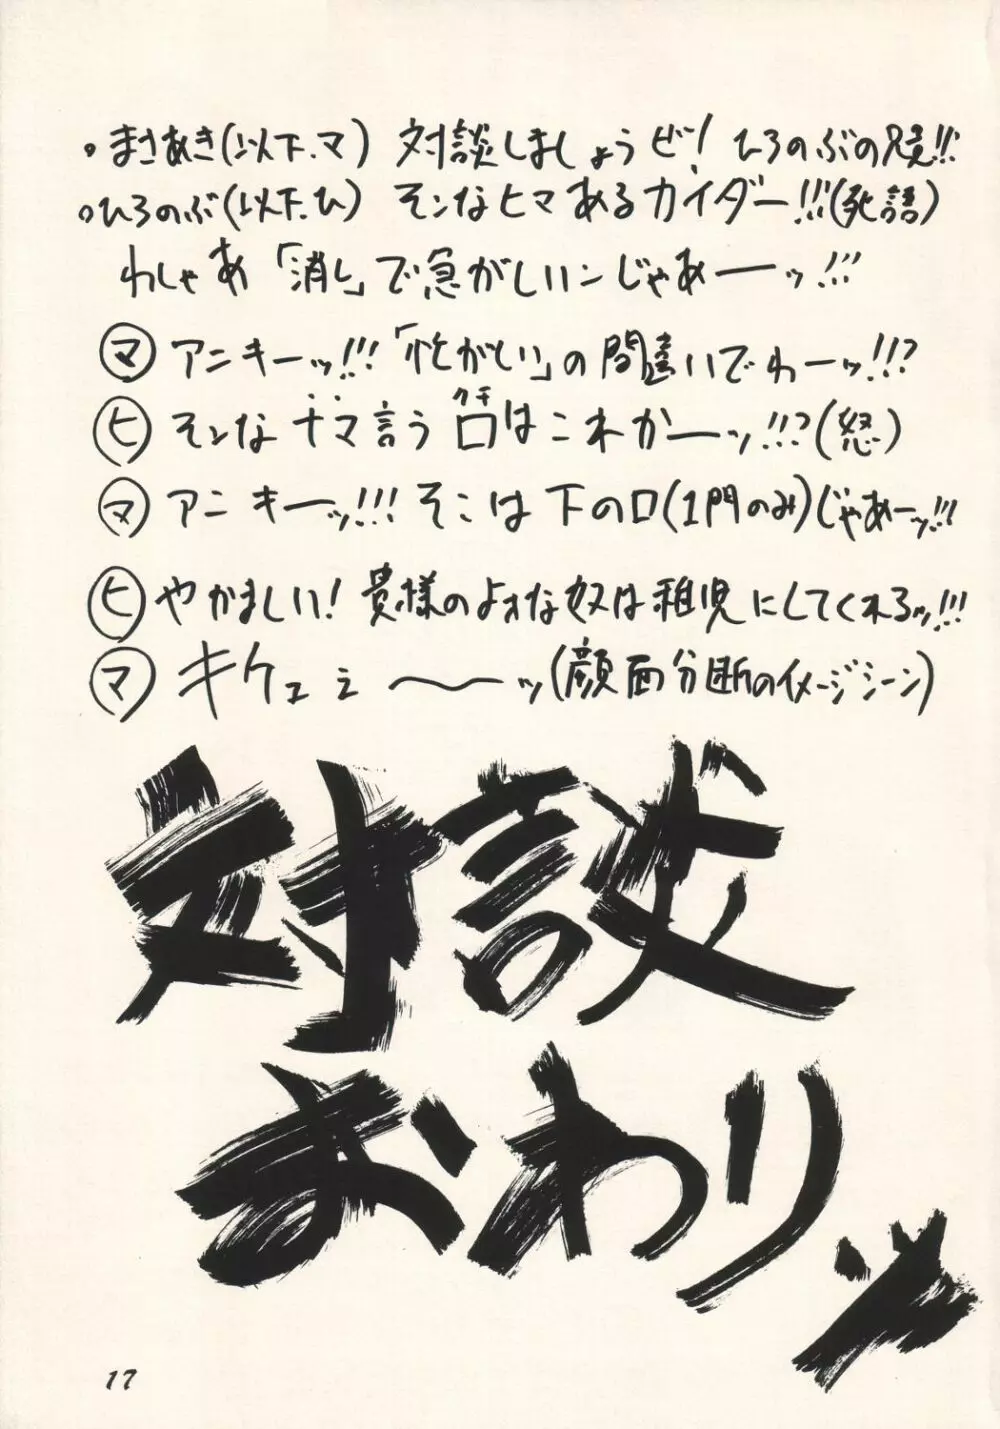 ○まさあき(以下.マ) 対談しましょうゼ! ひろのぶの兄貴!!
○ひろのぶ(以下.ひ) そンなヒマあるカイダー!!!(死語)
わしゃあ「消し」で急がしいンじゃあーーッ!!!
㋮ アニキーッ!!!「忙がしい」の間違いでわーッ!!?
㋪ そンなナマ言う口クチはこれかーーッ!!?(怒)
㋮ アニキーッ!!! そこは下の口(1門のみ)じゃあーッ!!!
㋪ やかましい! 貴様のよオな奴は稚児にしてくれるッ!!!
㋮ キケェェ〜〜ッ(顔面分断のイメージシーン)
対談
おわりッ
17